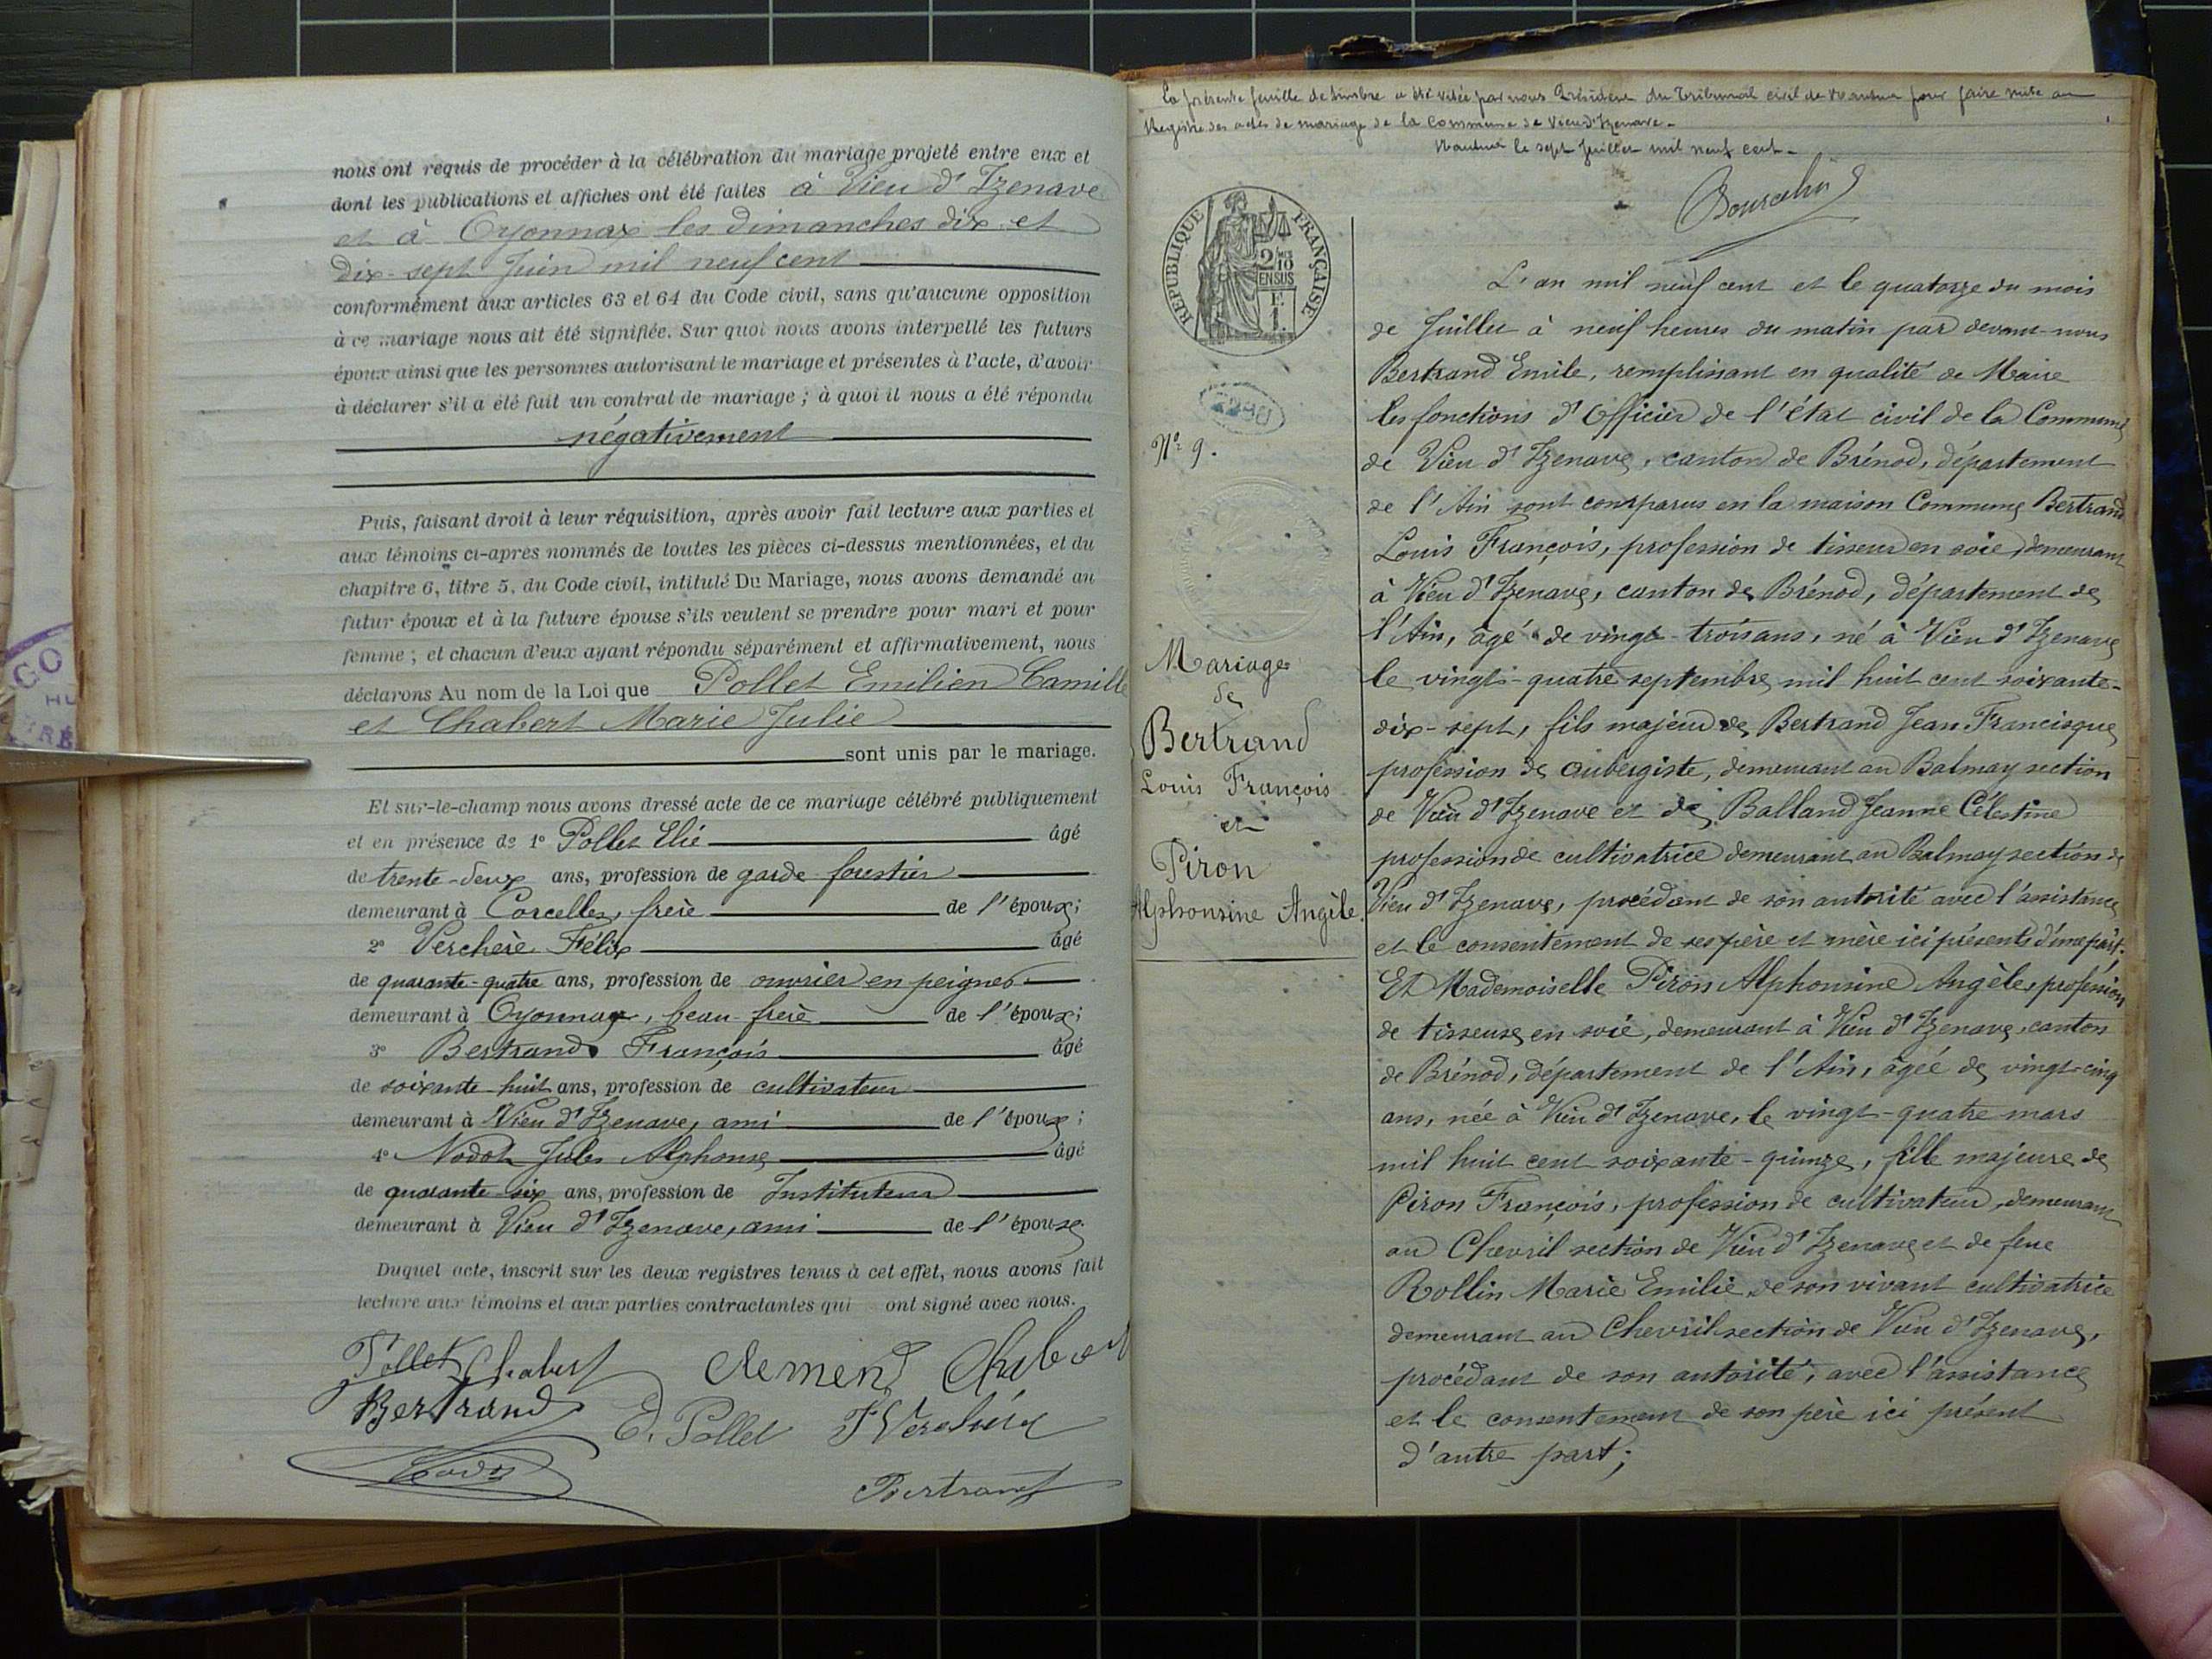 nous ont requis de procéder à la célébration du mariage projeté entre eux et
dont les publications et affiches ont été faites à Vieu d'Izenave
et à Oyonnax les dimanches dix et
dix-sept Juin mil neuf cent
conformément aux articles 63 et 64 du Code civil, sans qu'aucune opposition
à ce mariage nous ait été signifiée. Sur quoi nous avons interpellé les futurs
époux ainsi que les personnes autorisant le mariage et présentes à l'acte, d'avoir
à déclarer s'il a été fait un contrat de mariage ; à quoi il nous a été répondu
négativement
Puis, faisant droit à leur réquisition, après avoir fait lecture aux parties et
aux témoins ci-après nommés de toutes les pièces ci-dessus mentionnées, et du
chapitre 6, titre 5, du Code civil, intitulé Du Mariage, nous avons demandé au
futur époux et à la future épouse s'ils veulent se prendre pour mari et pour
femme ; et chacun d'eux ayant répondu séparément et affirmativement, nous
déclarons Au nom de la Loi que Pollet Emilien Camille
et Chabert Marie Julie
sont unis par le mariage.
Et sur-le-champ nous avons dressé acte de ce mariage célébré publiquement
et en présence de 1° Pollet Elie âgé
de trente-deux ans, profession de garde forestier
demeurant à Corcelles, frère de l'époux;
2° Verchère Félix âgé
de quarante-quatre ans, profession de ouvrier en peignes
demeurant à Oyonnax, beau-frère de l'époux;
3° Bertrand François âgé
de soixante-huit ans, profession de cultivateur
demeurant à Vieu d'Izenave, ami de l'époux;
4° Nodot Jules Alphonse âgé
de quarante-six ans, profession de Instituteur
demeurant à Vieu d'Izenave, ami de l'épouse
Duquel acte, inscrit sur les deux registres tenus à cet effet, nous avons fait
lecture aux témoins et aux parties contractantes qui ont signé avec nous.
Pollet Chabert Clement Chabert
Bertrand E. Pollet F Verchère
Nodot
Bertrand
La présente feuille de timbre a été visée par nous Président du Tribunal civil de Nantua pour faire suite au
Registre des actes de mariage de la Commune de Vieu d'Izenave.
Nantua le sept Juillet mil neuf cent.
REPUBLIQUE FRANÇAISE
2/10
EN SUS
F.
1.
N° 9.
Mariage
de
Bertrand
Louis François
et
Piron
Alphonsine Angèle.
L'an mil neuf cent et le quatorze du mois
de Juillet à neuf heures du matin par devant nous
Bertrand Emile, remplissant en qualité de Maire
les fonctions d'Officier de l'état civil de la Commune
de Vieu d'Izenave, canton de Brénod, département
de l'Ain sont comparus en la maison Commune Bertrand
Louis François, profession de tisseur en soie, demeurant
à Vieu d'Izenave, canton de Brénod, département de
l'Ain, âgé de vingt-trois ans, né à Vieu d'Izenave
le vingt-quatre septembre mil huit cent soixante-
dix-sept, fils majeur de Bertrand Jean Francisque
profession de aubergiste, demeurant au Balmay section
de Vieu d'Izenave et de Balland Jeanne Célestine
profession de cultivatrice demeurant au Balmay section de
Vieu d'Izenave, procédant de son autorité avec l'assistance
et le consentement de ses père et mère ici présents d'une part.
Et Mademoiselle Piron Alphonsine Angèle, profession
de tisseuse en soie, demeurant à Vieu d'Izenave, canton
de Brénod, département de l'Ain, âgée de vingt-cinq
ans, née à Vieu d'Izenave, le vingt-quatre mars
mil huit cent soixante-quinze, fille majeure de
Piron François, profession de cultivateur, demeurant
au Chevril section de Vieu d'Izenave et de feue
Rollin Marie Emilie, de son vivant cultivatrice
demeurant au Chevril section de Vieu d'Izenave,
procédant de son autorité, avec l'assistance
et le consentement de son père ici présent
d'autre part;